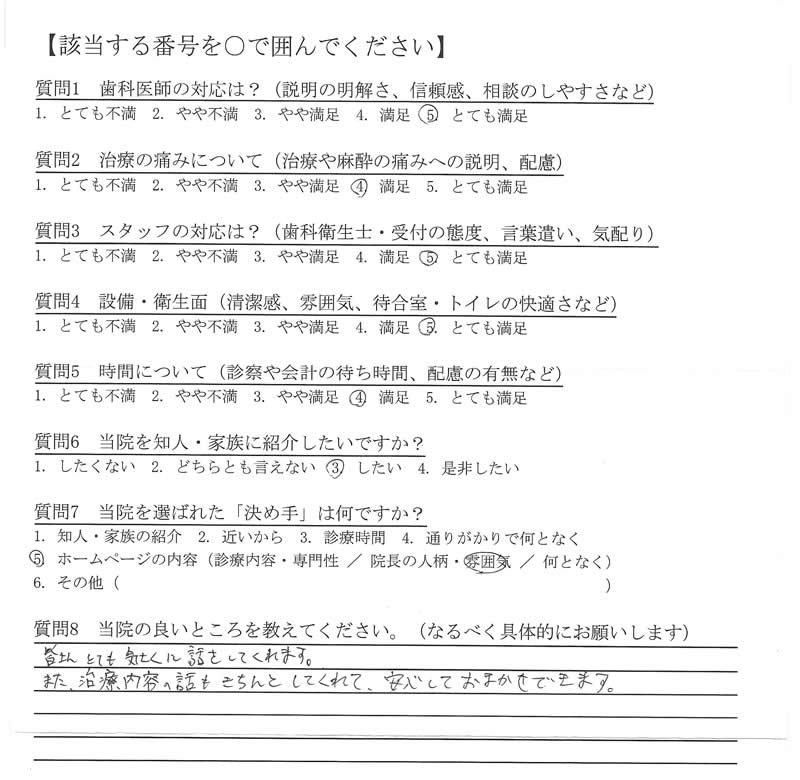 【該当する番号を○で囲んでください】
質問1 歯科医師の対応は?(説明の明解さ、信頼感、相談のしやすさなど)
1. とても不満 2. やや不満 3. やや満足 4. 満足 5. とても満足
質問2 治療の痛みについて(治療や麻酔の痛みへの説明、配慮)
1. とても不満 2. やや不満 3. やや満足 4. 満足 5. とても満足
質問3 スタッフの対応は?(歯科衛生士・受付の態度、言葉遣い、気配り)
1. とても不満 2. やや不満 3. やや満足 4. 満足 5. とても満足
質問4 設備・衛生面(清潔感、雰囲気、待合室・トイレの快適さなど)
1. とても不満 2. やや不満 3. やや満足 4. 満足 5. とても満足
質問5 時間について(診察や会計の待ち時間、配慮の有無など)
1. とても不満 2. やや不満 3. やや満足 4. 満足 5. とても満足
質問6 当院を知人・家族に紹介したいですか?
1. したくない 2. どちらとも言えない 3. したい 4. 是非したい
質問7 当院を選ばれた「決め手」は何ですか?
1. 知人・家族の紹介 2. 近いから 3. 診療時間 4. 通りがかりで何となく
5. ホームページの内容(診療内容・専門性 / 院長の人柄・雰囲気 / 何となく)
6. その他( )
質問8 当院の良いところを教えてください。(なるべく具体的にお願いします)
皆さん とても 気さくに 話をしてくれます。
また、治療内容の話も きちんと してくれて、安心して おまかせできます。